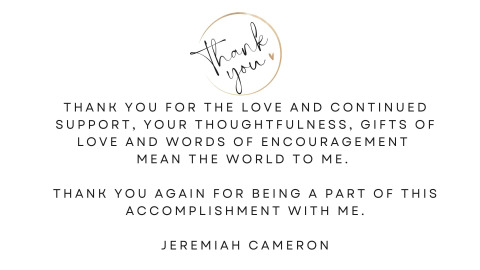 Thank
you
THANK YOU FOR THE LOVE AND CONTINUED
SUPPORT, YOUR THOUGHTFULNESS, GIFTS OF
LOVE AND WORDS OF ENCOURAGEMENT
MEAN THE WORLD TO ME.
THANK YOU AGAIN FOR BEING A PART OF THIS
ACCOMPLISHMENT WITH ME.
JEREMIAH CAMERON